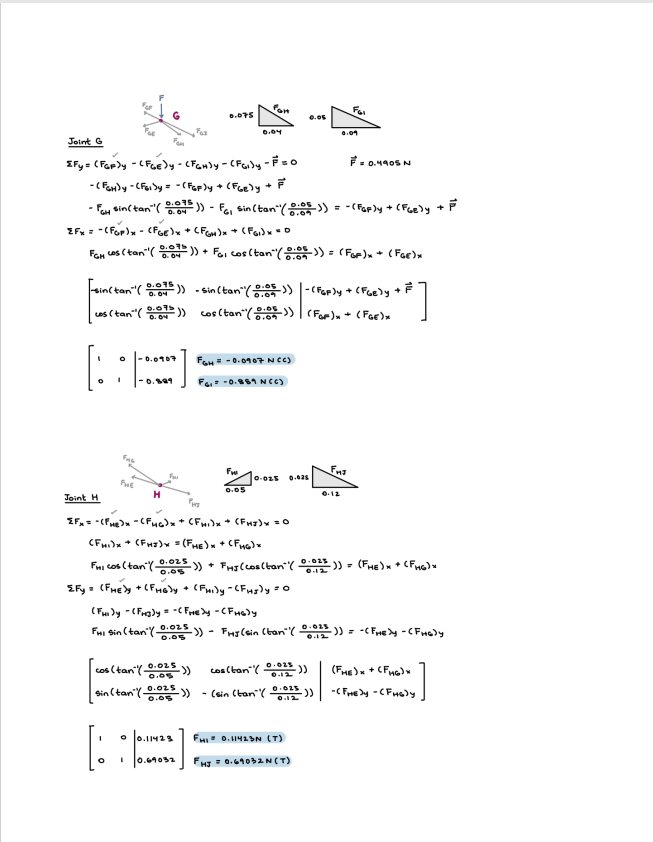 F
F_GF
G
F_GE
F_GH
F_GI
0.075
F_GH
0.04
0.05
F_GI
0.09
Joint G
ΣFy = (F_GF)y - (F_GE)y - (F_GH)y - (F_GI)y - F⃗ = 0
F⃗ = 0.4905 N
- (F_GH)y - (F_GI)y = - (F_GF)y + (F_GE)y + F⃗
- F_GH sin(tan⁻¹(0.075/0.04)) - F_GI sin(tan⁻¹(0.05/0.09)) = - (F_GF)y + (F_GE)y + F⃗
ΣFx = - (F_GF)x - (F_GE)x + (F_GH)x + (F_GI)x = 0
F_GH cos(tan⁻¹(0.075/0.04)) + F_GI cos(tan⁻¹(0.05/0.09)) = (F_GF)x + (F_GE)x
-sin(tan⁻¹(0.075/0.04)) -sin(tan⁻¹(0.05/0.09)) | - (F_GF)y + (F_GE)y + F⃗
cos(tan⁻¹(0.075/0.04)) cos(tan⁻¹(0.05/0.09)) | (F_GF)x + (F_GE)x
1 0 | -0.0907
F_GH = -0.0907 N (C)
0 1 | -0.889
F_GI = -0.889 N (C)
F_HG
F_HE
F_HI
H
F_HJ
F_HI
0.025
0.05
0.025
F_HJ
0.12
Joint H
ΣFx = - (F_HE)x - (F_HG)x + (F_HI)x + (F_HJ)x = 0
(F_HI)x + (F_HJ)x = (F_HE)x + (F_HG)x
F_HI cos(tan⁻¹(0.025/0.05)) + F_HJ (cos(tan⁻¹(0.025/0.12)) = (F_HE)x + (F_HG)x
ΣFy = (F_HE)y + (F_HG)y + (F_HI)y - (F_HJ)y = 0
(F_HI)y - (F_HJ)y = - (F_HE)y - (F_HG)y
F_HI sin(tan⁻¹(0.025/0.05)) - F_HJ (sin(tan⁻¹(0.025/0.12)) = - (F_HE)y - (F_HG)y
cos(tan⁻¹(0.025/0.05)) cos(tan⁻¹(0.025/0.12)) | (F_HE)x + (F_HG)x
sin(tan⁻¹(0.025/0.05)) - (sin(tan⁻¹(0.025/0.12)) | - (F_HE)y - (F_HG)y
1 0 | 0.11423
F_HI = 0.11423 N (T)
0 1 | 0.69032
F_HJ = 0.69032 N (T)